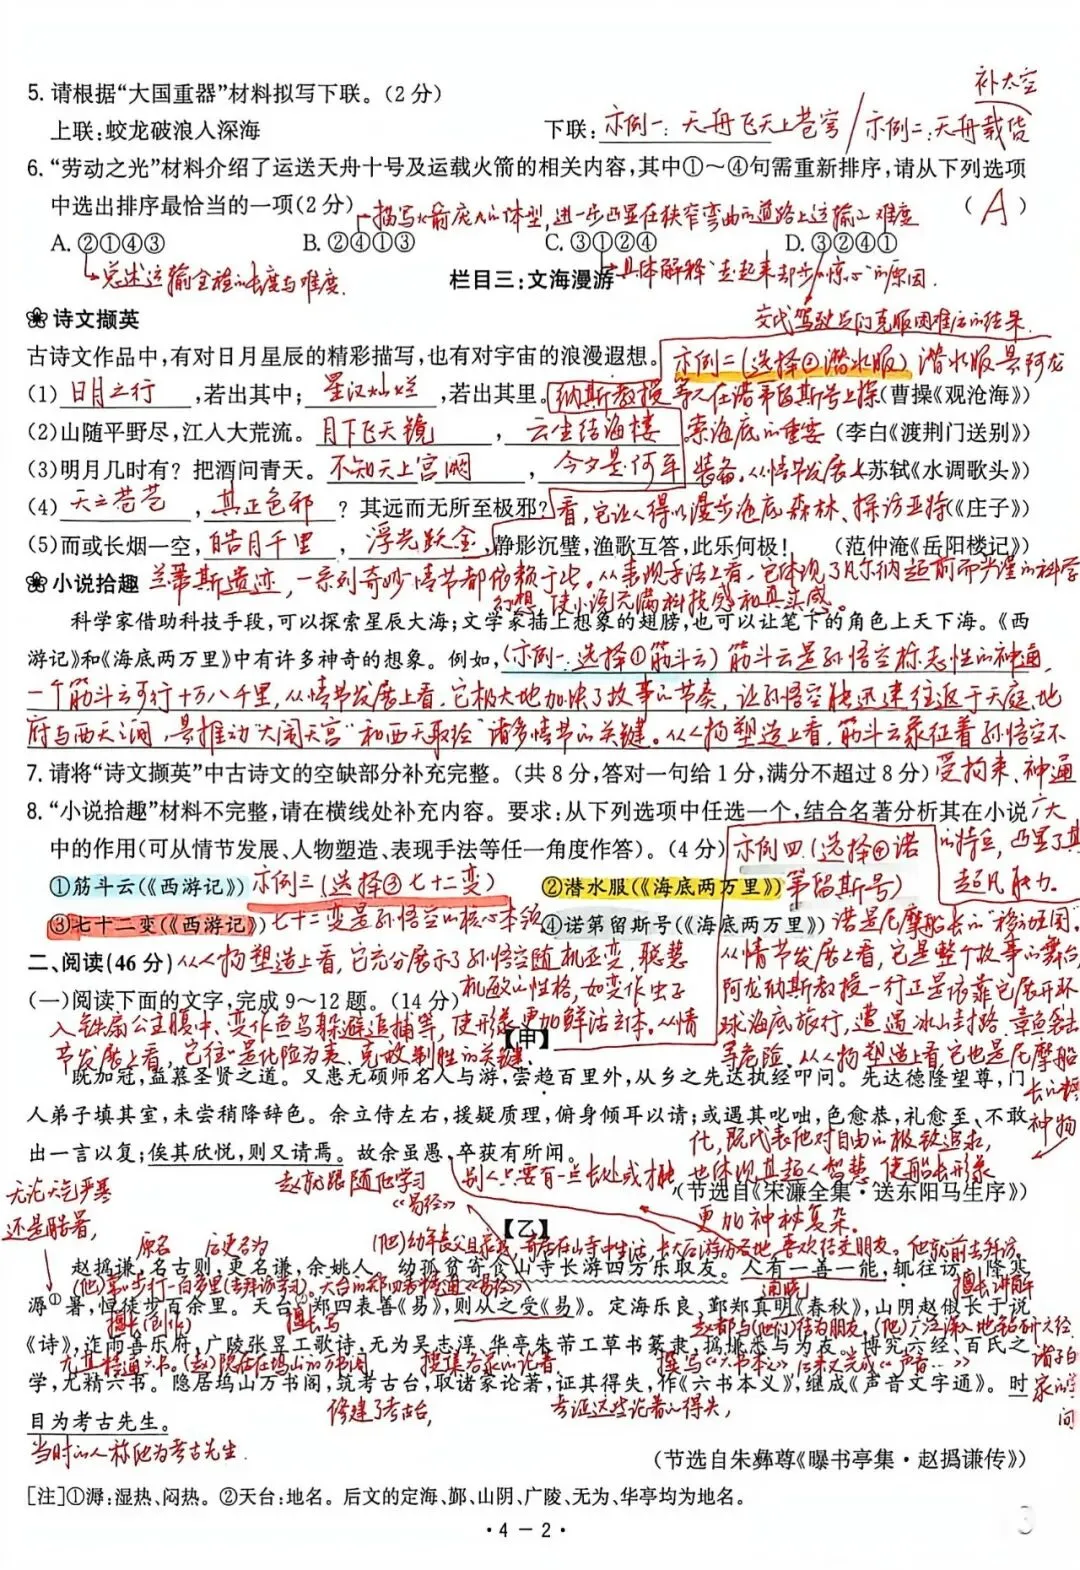 5. 请根据“大国重器”材料拟写下联。(2分)
补太空
上联:蛟龙破浪入深海 下联: 示例一: 天舟飞天上苍穹 / 示例二:天舟载货
6. “劳动之光”材料介绍了运送天舟十号及运载火箭的相关内容,其中①～④句需重新排序,请从下列选项
中选出排序最恰当的一项(2分) (A)
描写火箭庞大的体型,进一步凸显在狭窄弯曲的道路上运输的难度
A. ②①④③ B. ②④①③ C. ③①②④ D. ③②④①
总述运输全程的长度与难度. 栏目三:文海漫游 具体解释“走起来却步步惊心”的原因.
❀诗文撷英 交代驾驶员们克服困难后的结果.
古诗文作品中,有对日月星辰的精彩描写,也有对宇宙的浪漫遐想。 示例二(选择②潜水服) 潜水服是阿龙
(1) 日月之行 ,若出其中; 星汉灿烂 ,若出其里。 纳斯教授等人在诺第留斯号上探 (曹操《观沧海》)
(2)山随平野尽,江入大荒流。 月下飞天镜 , 云生结海楼 索海底的重要 (李白《渡荆门送别》)
(3)明月几时有? 把酒问青天。 不知天上宫阙 , 今夕是何年 装备。从情节发展上 (苏轼《水调歌头》)
(4) 天之苍苍 , 其正色邪 ? 其远而无所至极邪? 看,它让人得以漫步海底森林、探访亚特 (《庄子》)
(5)而或长烟一空, 皓月千里 , 浮光跃金 ,静影沉璧,渔歌互答,此乐何极! (范仲淹《岳阳楼记》)
❀小说拾趣 兰蒂斯遗迹,一系列奇妙情节都依赖于此。从表现手法上看,它体现了凡尔纳超前而严谨的科学
幻想,使小说充满科技感和真实感。
科学家借助科技手段,可以探索星辰大海;文学家插上想象的翅膀,也可以让笔下的角色上天下海。《西
游记》和《海底两万里》中有许多神奇的想象。例如, (示例一.选择①筋斗云) 筋斗云是孙悟空标志性的神通,
一个筋斗云可行十万八千里,从情节发展上看,它极大地加快了故事的节奏,让孙悟空能迅速往返于天庭、地
府与西天之间,是推动“大闹天宫”和西天取经”诸多情节的关键。从人物塑造上看,筋斗云象征着孙悟空不
7. 请将“诗文撷英”中古诗文的空缺部分补充完整。(共8分,答对一句给1分,满分不超过8分) 受拘束、神通
8. “小说拾趣”材料不完整,请在横线处补充内容。要求:从下列选项中任选一个,结合名著分析其在小说 广大
中的作用(可从情节发展、人物塑造、表现手法等任一角度作答)。(4分) 示例四.(选择④诺 的特点,凸显了其
①筋斗云(《西游记》) 示例三(选择③七十二变) ②潜水服(《海底两万里》) 第留斯号) 超凡能力.
③七十二变(《西游记》) 七十二变是孙悟空的核心本领 ④诺第留斯号(《海底两万里》) 诺是尼摩船长的“移动王国”.
二、阅读(46分) 从人物塑造上看,它充分展示了孙悟空随机应变,聪慧 从情节发展上看,它是整个故事的舞台,
(一)阅读下面的文字,完成9～12题。(14分) 机敏的性格,如变作虫子 阿龙纳斯教授一行正是依靠它展开环
入铁扇公主腹中、变作鱼鸟躲避追捕等,使形象更加鲜活立体.从情 球海底旅行,遭遇冰山封路、章鱼袭击
【甲】
节发展上看,它往往是化险为夷、克敌制胜的关键. 等危险.从人物塑造上看,它也是尼摩船
既加冠,益慕圣贤之道。又患无硕师名人与游,尝趋百里外,从乡之先达执经叩问。先达德隆望尊,门
人弟子填其室,未尝稍降辞色。余立侍左右,援疑质理,俯身倾耳以请;或遇其叱咄,色愈恭,礼愈至,不敢
出一言以复;俟其欣悦,则又请焉。故余虽愚,卒获有所闻。 化,既代表他对自由的极致追求,
也体现其超人智慧,使船长形象
(节选自《宋濂全集·送东阳马生序》)
更加神秘复杂.
无论天气严寒 赵就跟随他学习 别人只要有一些长处或才能
还是酷暑, 《易经》
【乙】
原名 后更名为
赵㧑谦,名古则,更名谦,余姚人。幼孤贫寄食山寺长游四方乐取友。人有一善一能,辄往访。隆寒
溽①暑,恒徒步百余里。天台②郑四表善《易》,则从之受《易》。定海乐良、鄞郑真明《春秋》,山阴赵俶长于说
《诗》,迮雨善乐府,广陵张昱工歌诗,无为吴志淳、华亭朱芾工草书篆隶,㧑挑悉与为友。博究六经、百氏之
学,尤精六书。隐居坞山万书阁,筑考古台,取诸家论著,证其得失,作《六书本义》,继成《声音文字通》。时
目为考古先生。 修建了考古台, 考证这些论著的得失,
当时的人称他为考古先生.
(节选自朱彝尊《曝书亭集·赵㧑谦传》)
[注]①溽:湿热、闷热。②天台:地名。后文的定海、鄞、山阴、广陵、无为、华亭均为地名。
·4-2·
3